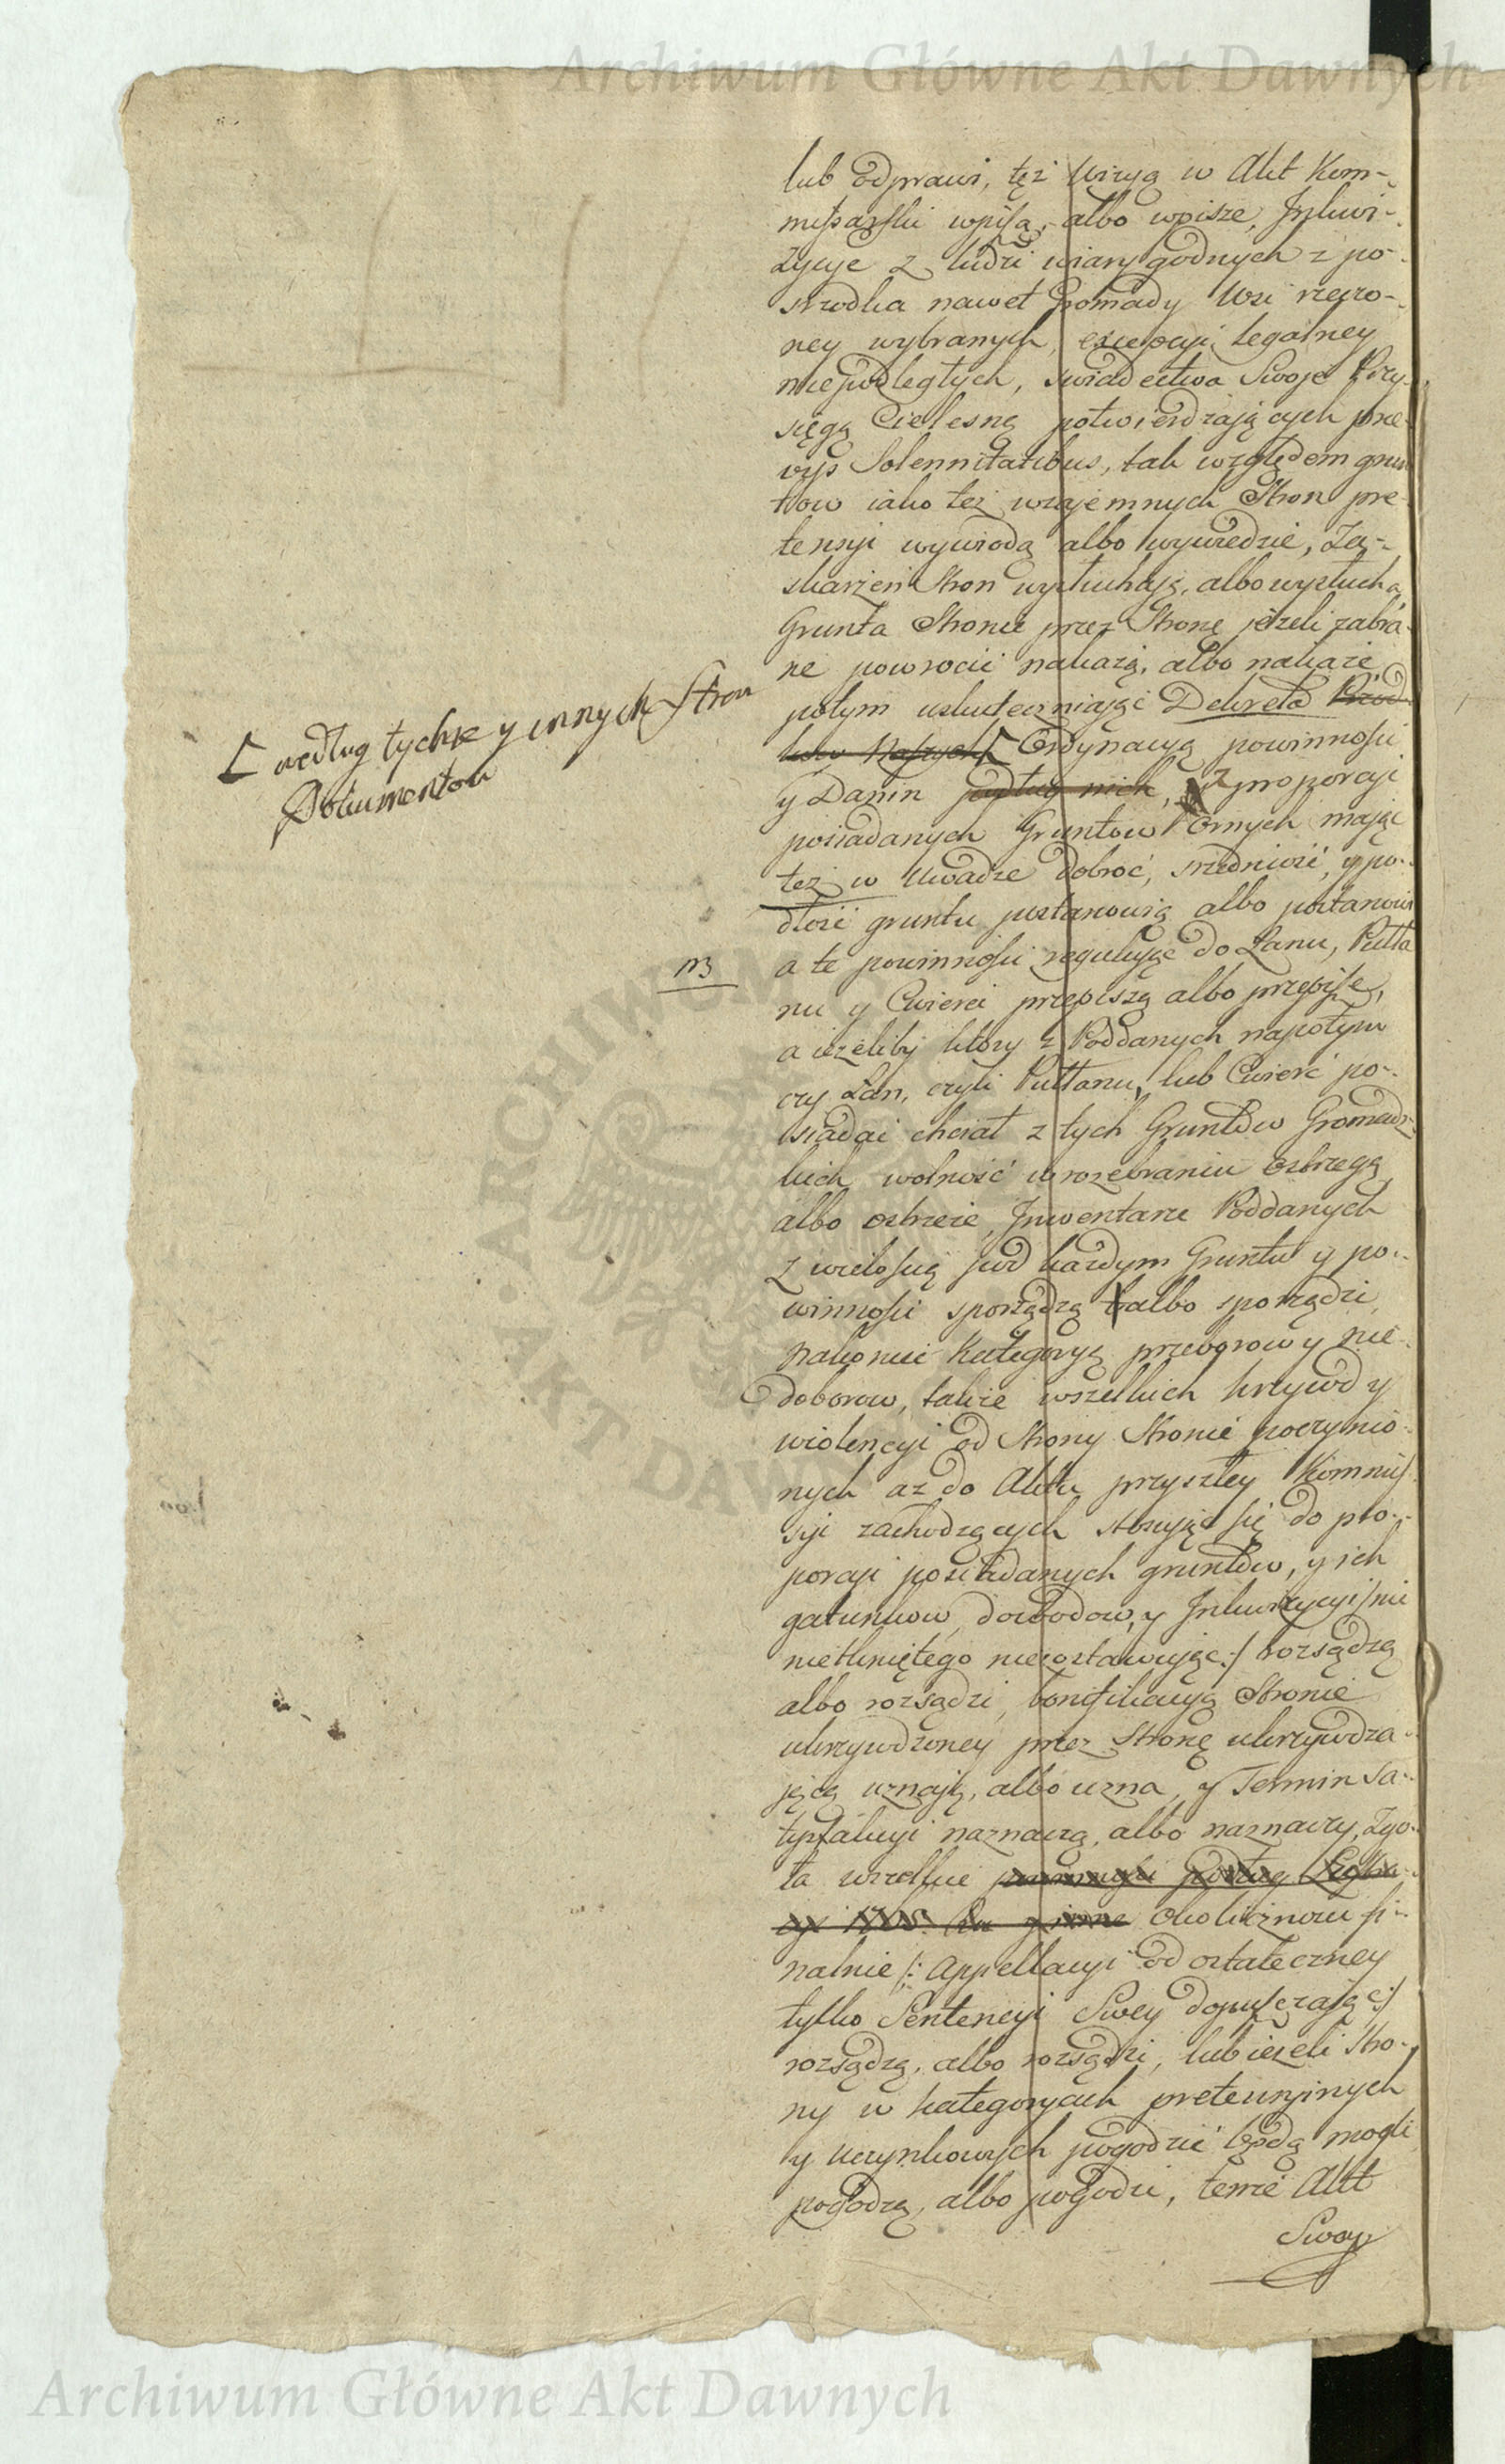 Archiwum Główne Akt Dawnych
lub odprawi, też Wizyą w Akt Kom-
missarski wpiszą, albo wpisze, Inkwi-
zycye z ludzi wiary godnych z po-
srzodka nawet Gromady Wsi rzeczo-
ney wybranych, excepcyi legalney
niepodległych, swiadectwa Swoje Przy-
sięgą Cielesną potwierdzających prae-
viis Solennitatibus, tak względem grun
tow iako też wzajemnych Stron pre-
tensyi wywiodą albo wywiedzie, Za-
skarżeń Stron wysłuchają, albo wysłucha,
Grunta Stronie przez Stronę jeżeli zabra-
ne powrocić nakażą, albo nakaże
potym uskuteczniając Dekreta Przod
kow Naszych Ordynacyą powinności
y Danin podług nich, z proporcyi
posiadanych Gruntow Ornych mając
też w Uwadze dobroć, srzedniość, y po-
dłość gruntu postanowią albo postanowi
a te powinności regulując do Łanu, Pułła
nu y Cwierci przepiszą albo przepisze,
a ieżeliby ktory z Poddanych napotym
czy Łan, czyli Pułłanu, lub Cwierć po-
siadać chciał z tych Gruntow Gromadz-
kich wolność w rozebraniu ostrzegą
albo ostrzeże, Inwentarze Poddanych
z wielością pod każdym Gruntu y po-
winności sporządzą albo sporządzi,
nakoniec Kategoryą przeborow y nie-
doborow, także wszelkich krzywd y
wiolencyi od Strony Stronie poczynio-
nych aż do Aktu przyszłey Kommis-
syi zachodzących stosując się do pro-
porcyi posiadanych gruntow, y ich
gatunkow, dowodow, y Inkwizycyi /nic
nietkniętego niezostawując:/ rozsądzą
albo rozsądzi, bonifikacyą Stronie
ukrzywdzoney przez Stronę ukrzywdza-
jącą uznają, albo uzna, y Termin Sa-
tysfakcyi naznaczą, albo naznaczy, Zgo-
ła wszelkie
okoliczności fi-
nalnie /: Appellacyi od ostateczney
tylko Sentencyi Swey dopuszczając:/
rozsądzą, albo rozsądzi, lub ieżeli Stro-
ny w kategoryach pretensyinych
y uczynkowych pogodzić będą mogli
pogodzą, albo pogodzi, tenże Akt
Swoy
według tychże y innych Stron
Dokumentow
NB
ARCHIWUM
AKT DAWNYCH
Archiwum Główne Akt Dawnych